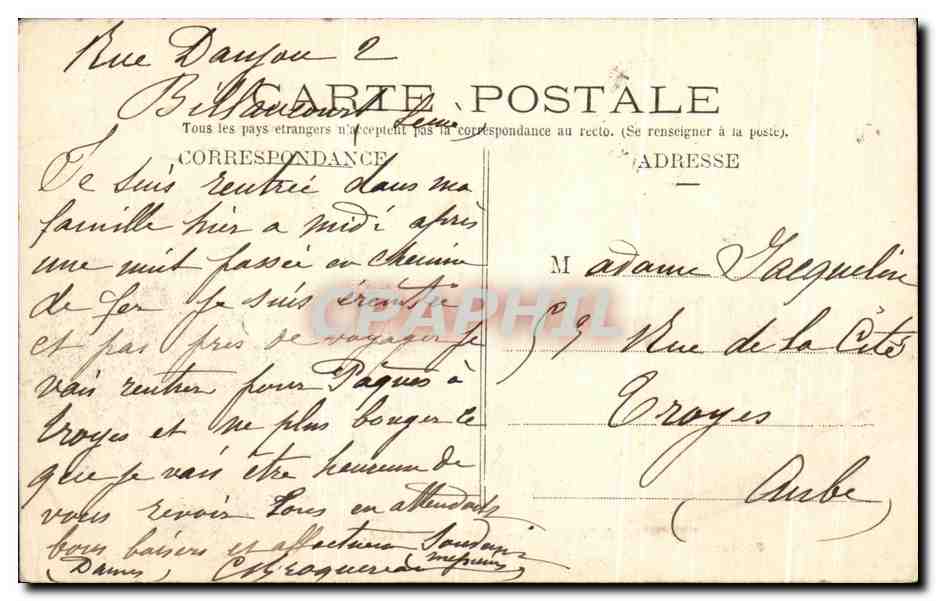 Rue Danjou 2
Billancourt Seine
CARTE POSTALE
Tous les pays étrangers n'acceptent pas la correspondance au recto. (Se renseigner à la poste).
CORRESPONDANCE
Je suis rentrée dans ma
famille hier a midi après
une nuit passée en chemin
de fer je suis éreintée
et pas près de voyager je
vais rentrer pour Pâques à
Troyes et ne plus bouger ce
que je vais être heureuse de
vous revoir tous en attendant
bons baisers et affectueux
(Dames)
ADRESSE
Madame Jacquelin
57 Rue de la Cité
Troyes
(Aube)
CPAPHIL